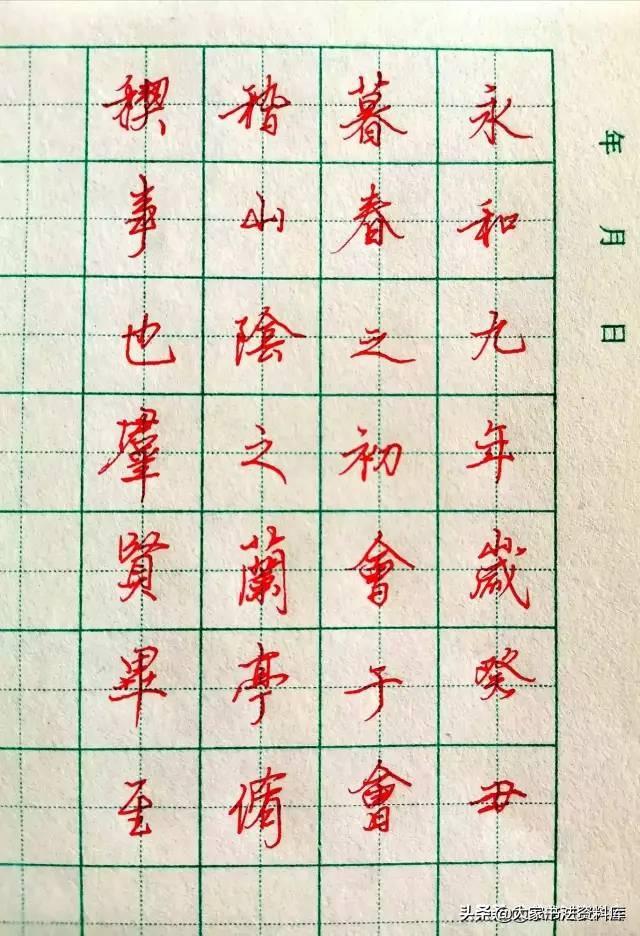 年月日
永和九年歲癸丑
暮春之初會于會
稽山陰之蘭亭脩
稧事也羣賢畢至
头条@大家书法资料库